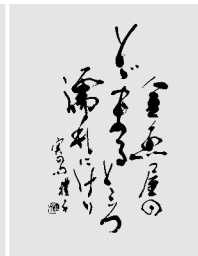 金魚屋の
とゞまる
ところ
濡れにけり